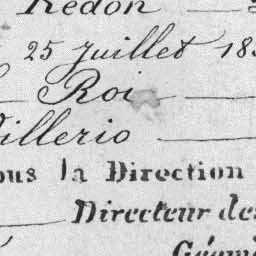 Redon
25 Juillet 18
Roi
illerio
ous la Direction
Directeur de
Géomé